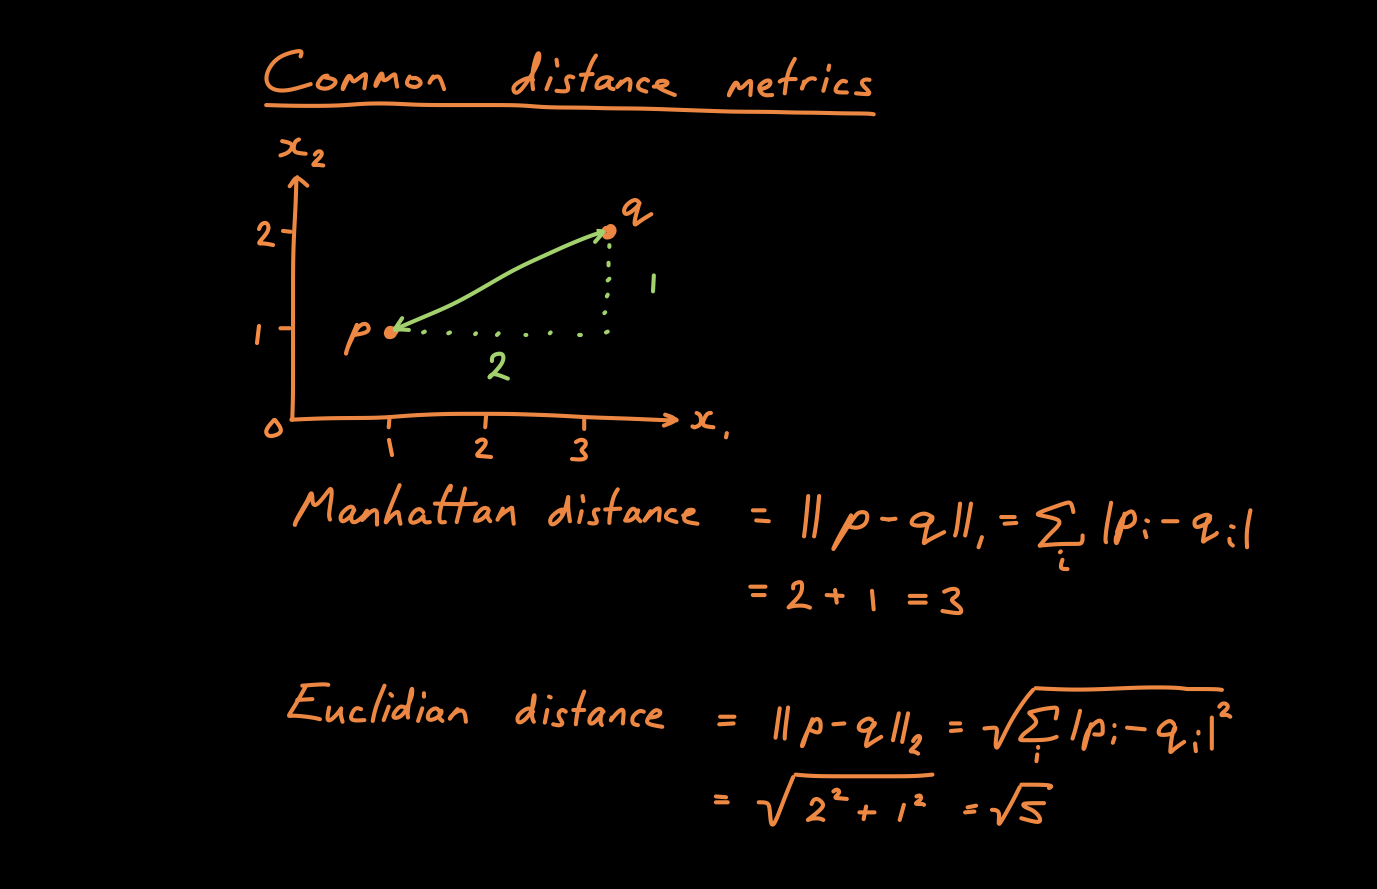 Common distance metrics
x₂
q
2
1
1
p
2
0
x₁
1 2 3
Manhattan distance = ||p-q||₁ = ∑ᵢ |pᵢ-qᵢ|
= 2 + 1 = 3
Euclidian distance = ||p-q||₂ = √(∑ᵢ |pᵢ-qᵢ|²)
= √(2²+1²) = √5